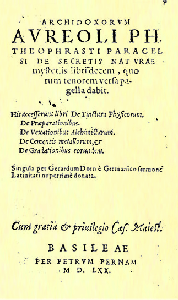 ARCHIDOXORVM
AVREOLI PH.
THEOPHRASTI PARACEL
SI DE SECRETIS NATVRAE
mysterijs libri decem, quo
rum tenorem versa pa
gella dabit.
His accesserunt libri De Tinctura Physicorum.
De Præparationibus.
De Vexationibus Alchimistarum.
De Cementis metallorum.
De Gradationibus eorundem.
Singula per Gerardum Dorn è Germanico sermone
Latinitati nuperrimè donata.
Cum gratia & priuilegio Cæs. Maiest.
BASILEAE
PER PETRVM PERNAM
M D. LXX.